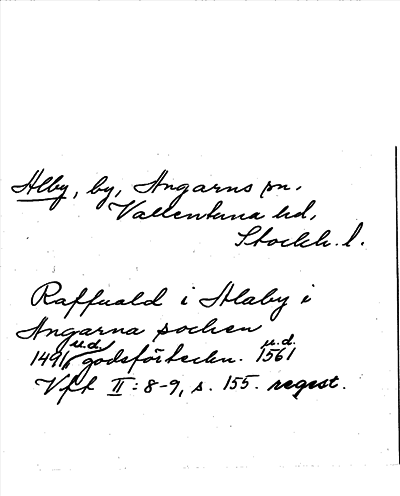 Alby, by, Angarns sn,
Vallentuna hd,
Stockh. l.
Raffuald i Alaby i
Angarna sochen
1491 u.d. godsförteckn. u.d. 1561
Vfft II: 8-9, s. 155. regest.